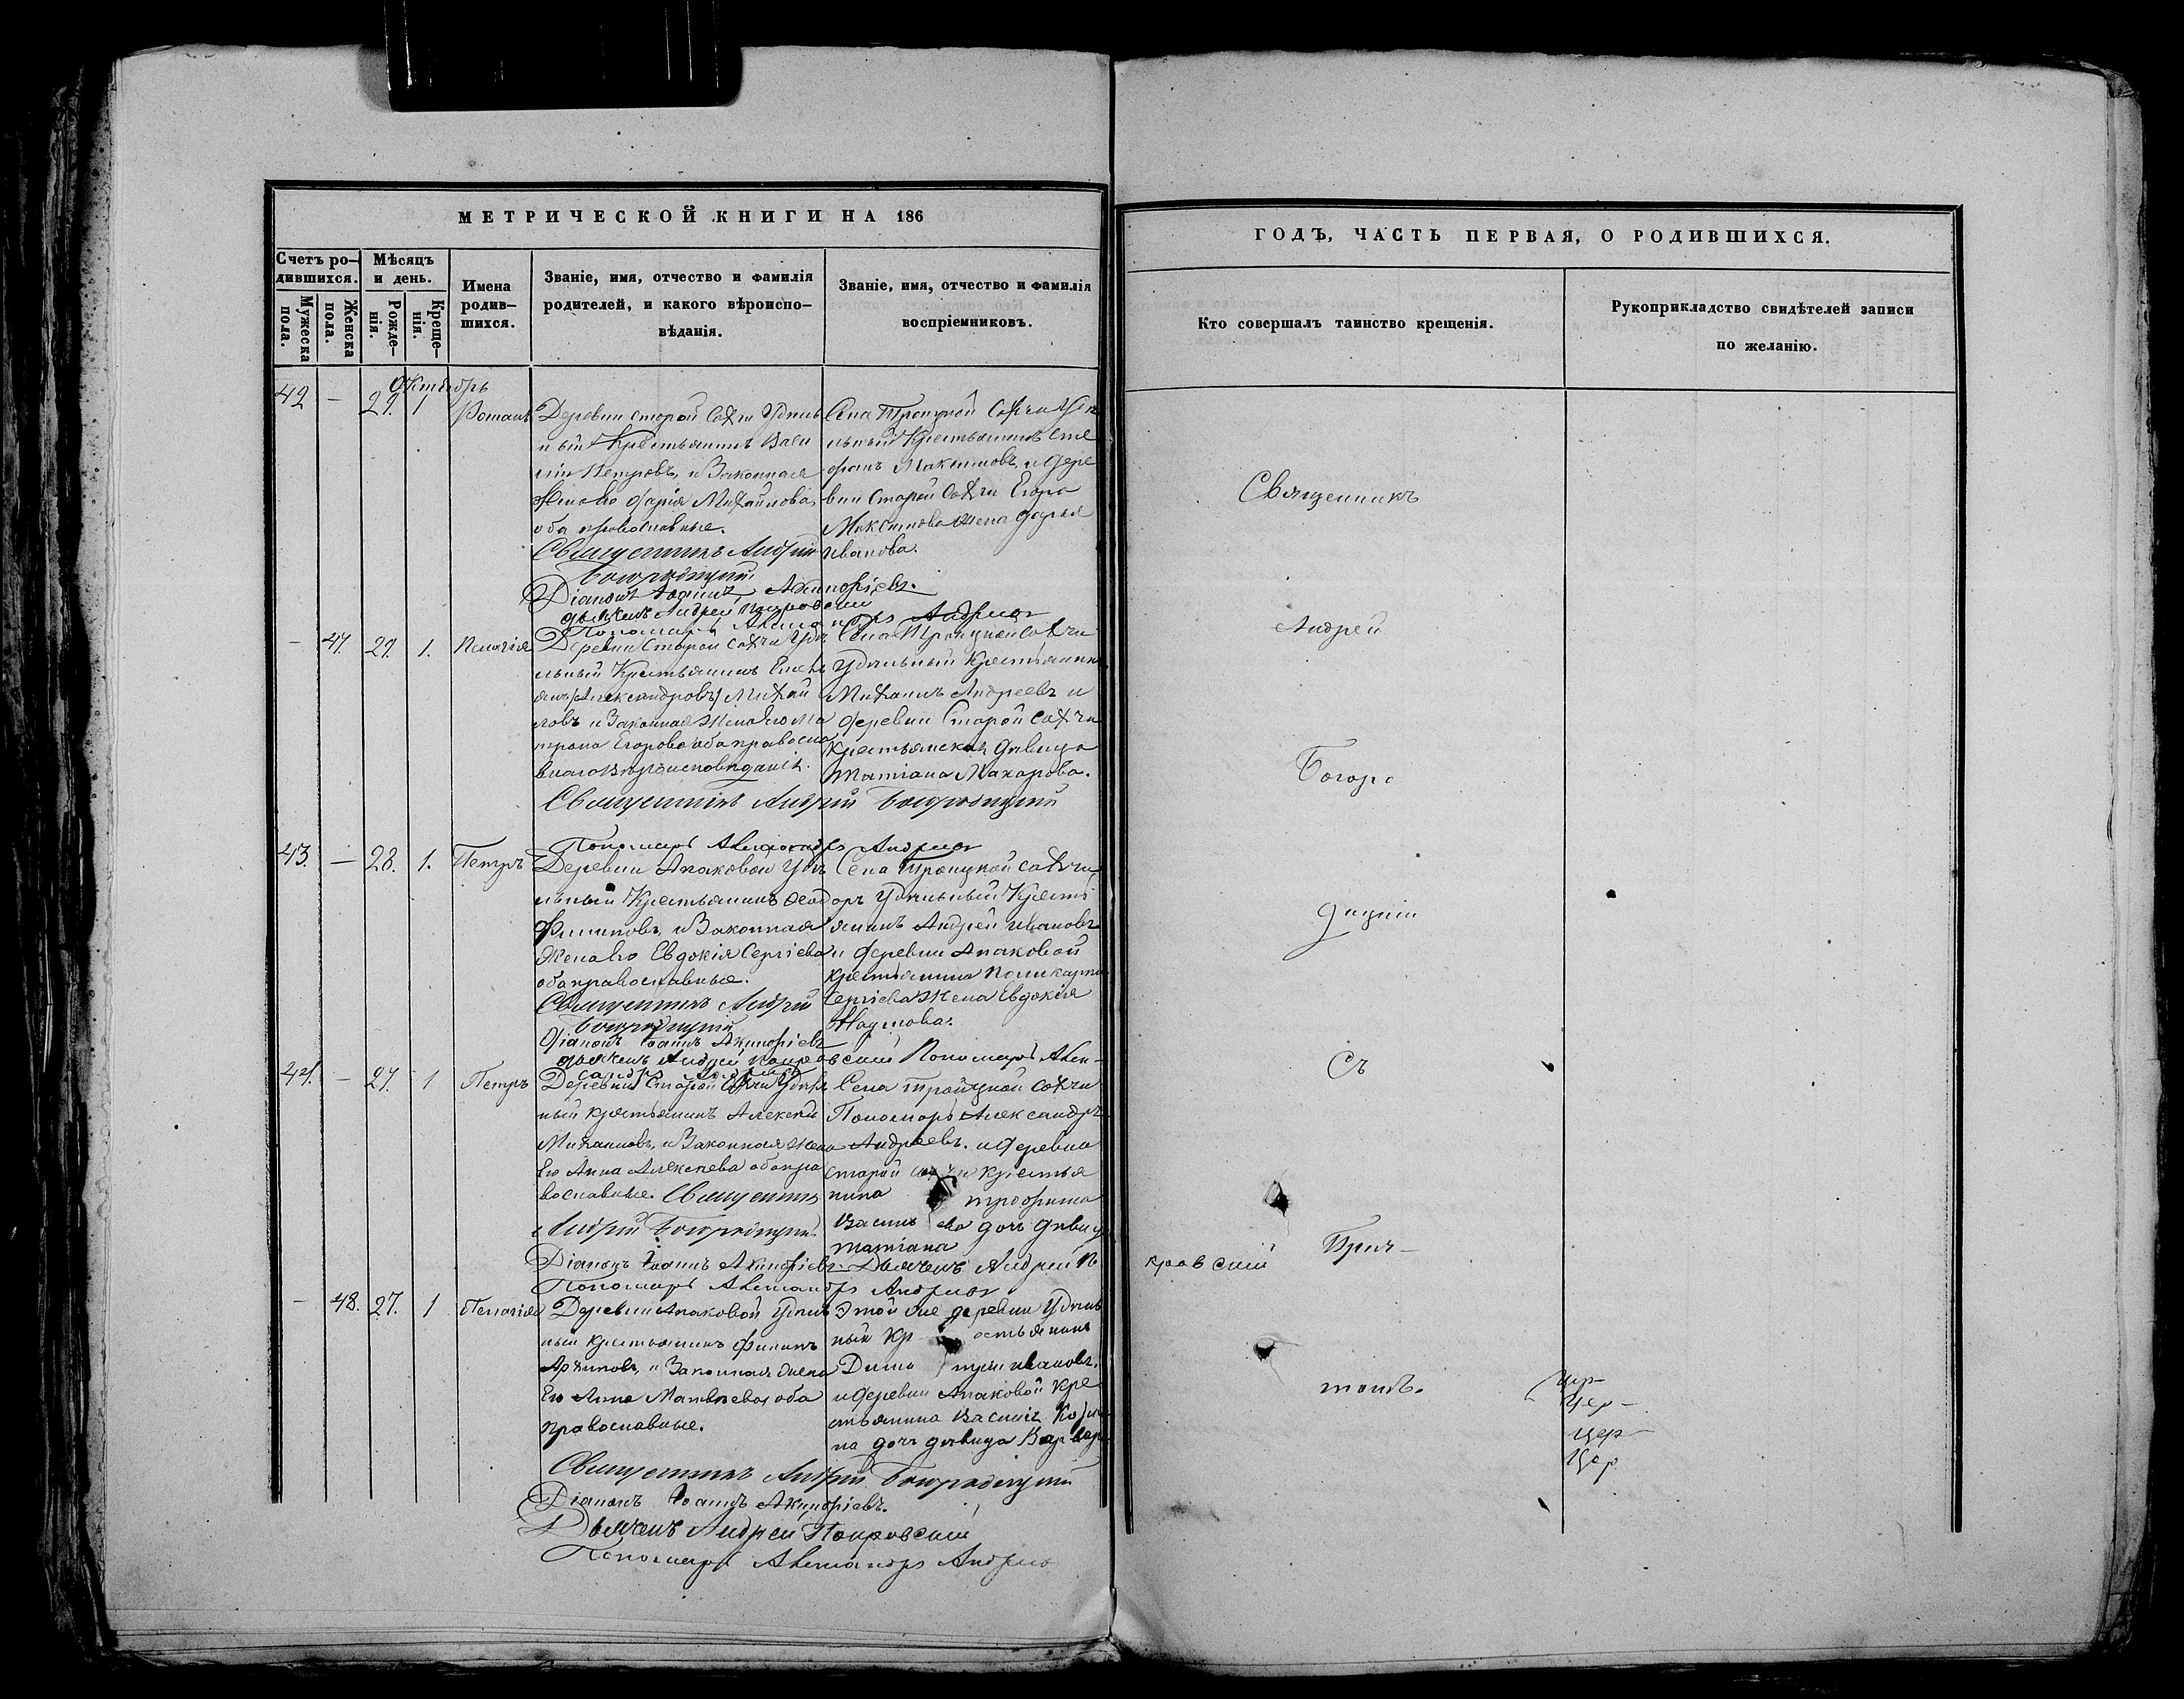 МЕТРИЧЕСКОЙ КНИГИ НА 186
Счетъ ро-
дившихся.
Мужеска
пола.
Женска
пола.
Мѣсяцъ
и день.
Рожде-
нія.
Креще-
нія.
Имена
родив-
шихся.
Званіе, имя, отчество и фамилія
родителей, и какого вѣроиспо-
вѣданія.
Званіе, имя, отчество и фамилія
воспріемниковъ.
Октябрь
42 – 29. 1 Романъ
Деревни старой Сахчи Удѣль
ный Крестьянинъ Васи
лій Петровъ, и Законная
Жена его Дарія Михайлова,
оба православные.
Священникъ Андрей
Богородицкій
Діаконъ Іоаннъ Акинфіевъ.
Дьячекъ Андрей Покровскій
Пономарь Александръ Андреевъ
Села Троицкой Сахчи Удѣ
льный Крестьянинъ Сте
фанъ Максимовъ, и дере
вни Старой Сахчи Егора
Максимова жена Дарья
Иванова.
– 47. 29. 1. Пелагія
Деревни Старой Сахчи Удѣ
льный Крестьянинъ Емель
янъ (Александровъ) Михай
ловъ и Законная Жена его Ма
трона Егорова оба правосла
внаго Вѣроисповѣданія.
Священникъ Андрей Богородицкій
Пономарь Александръ Андреевъ
Села Троицкой Сахчи
Удѣльный Крестьянинъ
Михаилъ Андреевъ и
деревни Старой Сахчи
Крестьянская дѣвица
Татіана Макарова.
43. – 28. 1. Петръ
Деревни Апаковой Удѣ
льный Крестьянинъ Ѳеодоръ
Филиповъ, и Законная
Жена его Евдокія Сергіева
оба православные.
Священникъ Андрей
Богородицкій
Діаконъ Іоаннъ Акинфіевъ
дьячекъ Андрей Покровскій Пономарь Алек-
сандръ Андреевъ
Села Троицкой Сахчи
Удѣльный Кресть
янинъ Андрей Ивановъ
и деревни Апаковой
Крестьянина Поликарпа
Сергіева Жена Евдокія
Наумова.
44. – 27. 1 Петръ
Деревни Старой Сахчи Удѣль
ный крестьянинъ Алексѣй
Михаиловъ, и Законная жена
Его Анна Алексѣева оба пра
вославные. Священникъ
Андрей Богородицкій
Діаконъ Іоаннъ Акинфіевъ. Дьячекъ Андрей По
Пономарь Александръ Андреевъ
Села Троицкой Сахчи
Пономарь Александръ
Андреевъ. и деревни
Старой Сахчи Крестья
нина Трофима
Васильева дочь дѣвица
Татіана
– 48. 27. 1 Пелагія
Деревни Апаковой Удѣль
ный крестьянинъ Филипъ
Архиповъ, и Законная жена
Его Анна Матвѣева, оба
православные.
Священникъ Андрей Богородицкій
Діаконъ Іоаннъ Акинфіевъ.
Дьячекъ Андрей Покровскій
Пономарь Александръ Андреевъ
Этой же деревни Удѣль
ный Крестьянинъ
Димитрій Ивановъ.
и деревни Апаковой Кре
стьянина Василія
на дочь дѣвица Варвара
ГОДЪ, ЧАСТЬ ПЕРВАЯ, О РОДИВШИХСЯ.
Кто совершалъ таинство крещенія.
Рукоприкладство свидѣтелей записи
по желанію.
Священникъ
Андрей
Богоро
дицкій
Съ
Прич-
кровскій
томъ.
Цер-
Цер-
Цер-
Цер